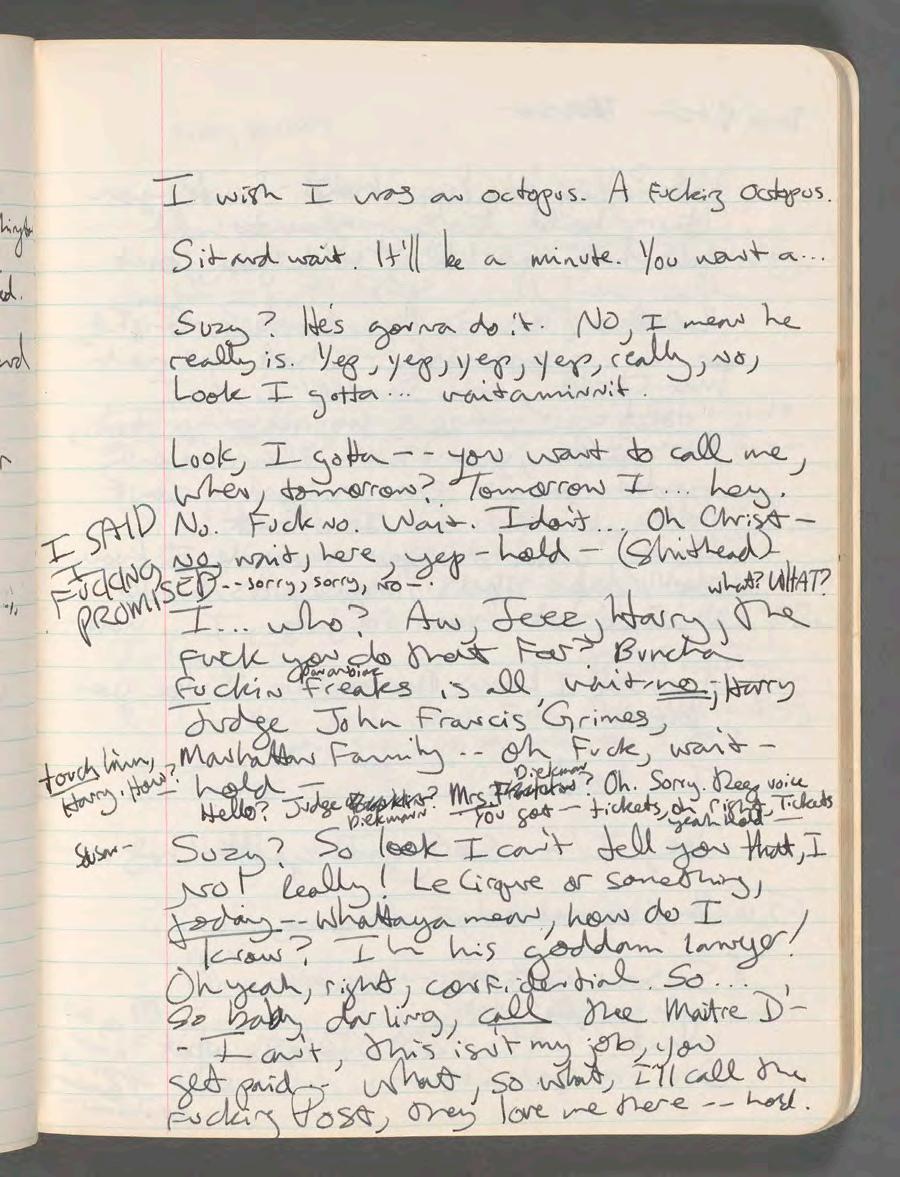 I wish I was an octopus. A fucking octopus.
Sit and wait. It'll be a minute. You want a...
Suzy? He's gonna do it. NO, I mean he
really is. Yep, yep, yep, yep, really, no,
Look I gotta... waitaminnit.
Look, I gotta -- you want to call me,
when, tomorrow? Tomorrow I... hey.
No. Fuck no. Wait. I don't... Oh Christ -
no, wait, here, yep - hold - (Shithead)
I SAID
I
FUCKING
PROMISED -- sorry, sorry, no -.
what? WHAT?
I... who? Aw, Jeez, Harry, the
fuck you do that for? Buncha
paranoiac
fuckin freaks is all, wait, no, Harry
Judge John Francis Grimes,
Manhattan Family -- oh fuck, wait -
touch him,
Harry. How?
hold -
Diekman
Hello? Judge Diekmann? Mrs. ? Oh. Sorry. Deep voice
You got - tickets, oh right, Tickets
yeah hold -
Susan -
Suzy? So look I can't tell you that, I
No! Really! Le Cirque or something,
today -- Whattaya mean, how do I
know? I'm his goddam lawyer!
Oh yeah, right, confidential. So...,
So baby darling, call the Maitre D-
- I can't, this isn't my job, you
get paid -- What, so what, I'll call the
fucking Post, they love me there -- hold.